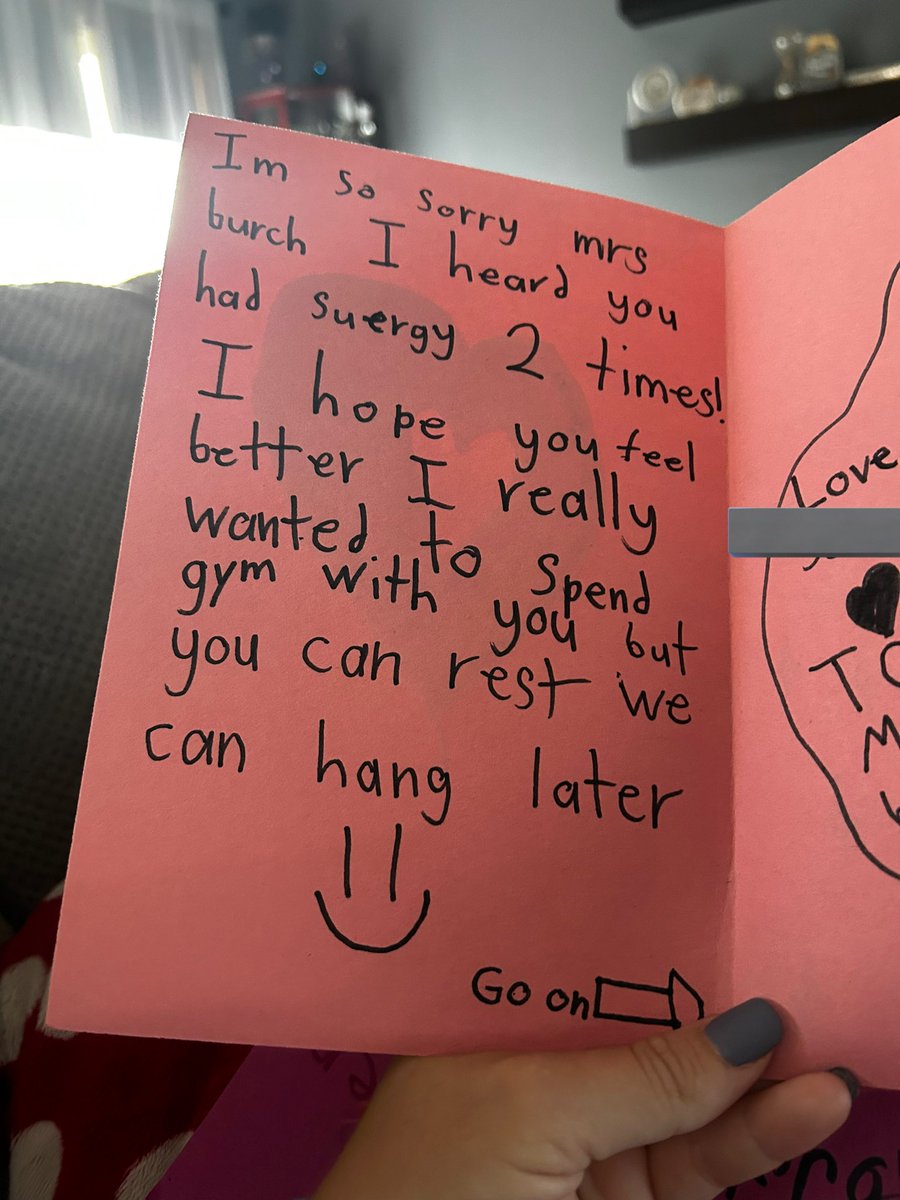 Im so sorry mrs
burch I heard you
had suergy 2 times!
I hope you feel
better I really
wanted to spend
gym with you but
you can rest we
can hang later
Go on
Love